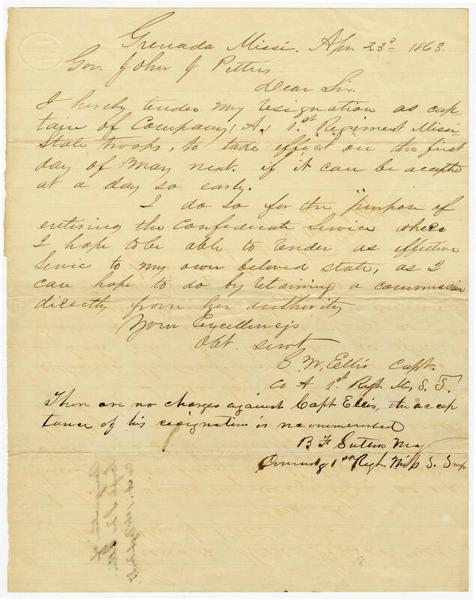 Grenada Missi. Apr 23d 1863.
Gov. John J Pettus
Dear Sir.
I hereby tender my resignation as cap
tain of Company, A, 1st Regiment Missi
State troops, to take effect on the first
day of May next. if it can be accepted
at a day so early.
I do so for the purpose of
entering the Confederate Service where
I hope to be able to render as effective
Servic to my own beloved state, as I
can hope to do by retaining a commission
directly from her authority
Your Excellencys
Obt Servt
W. Ellis Capt.
Co A 1st Regt M. S. T.
There are no charges against Capt Ellis, the accep
tance of his resignation is recommended
B F
1st Regt Miss S. Troops